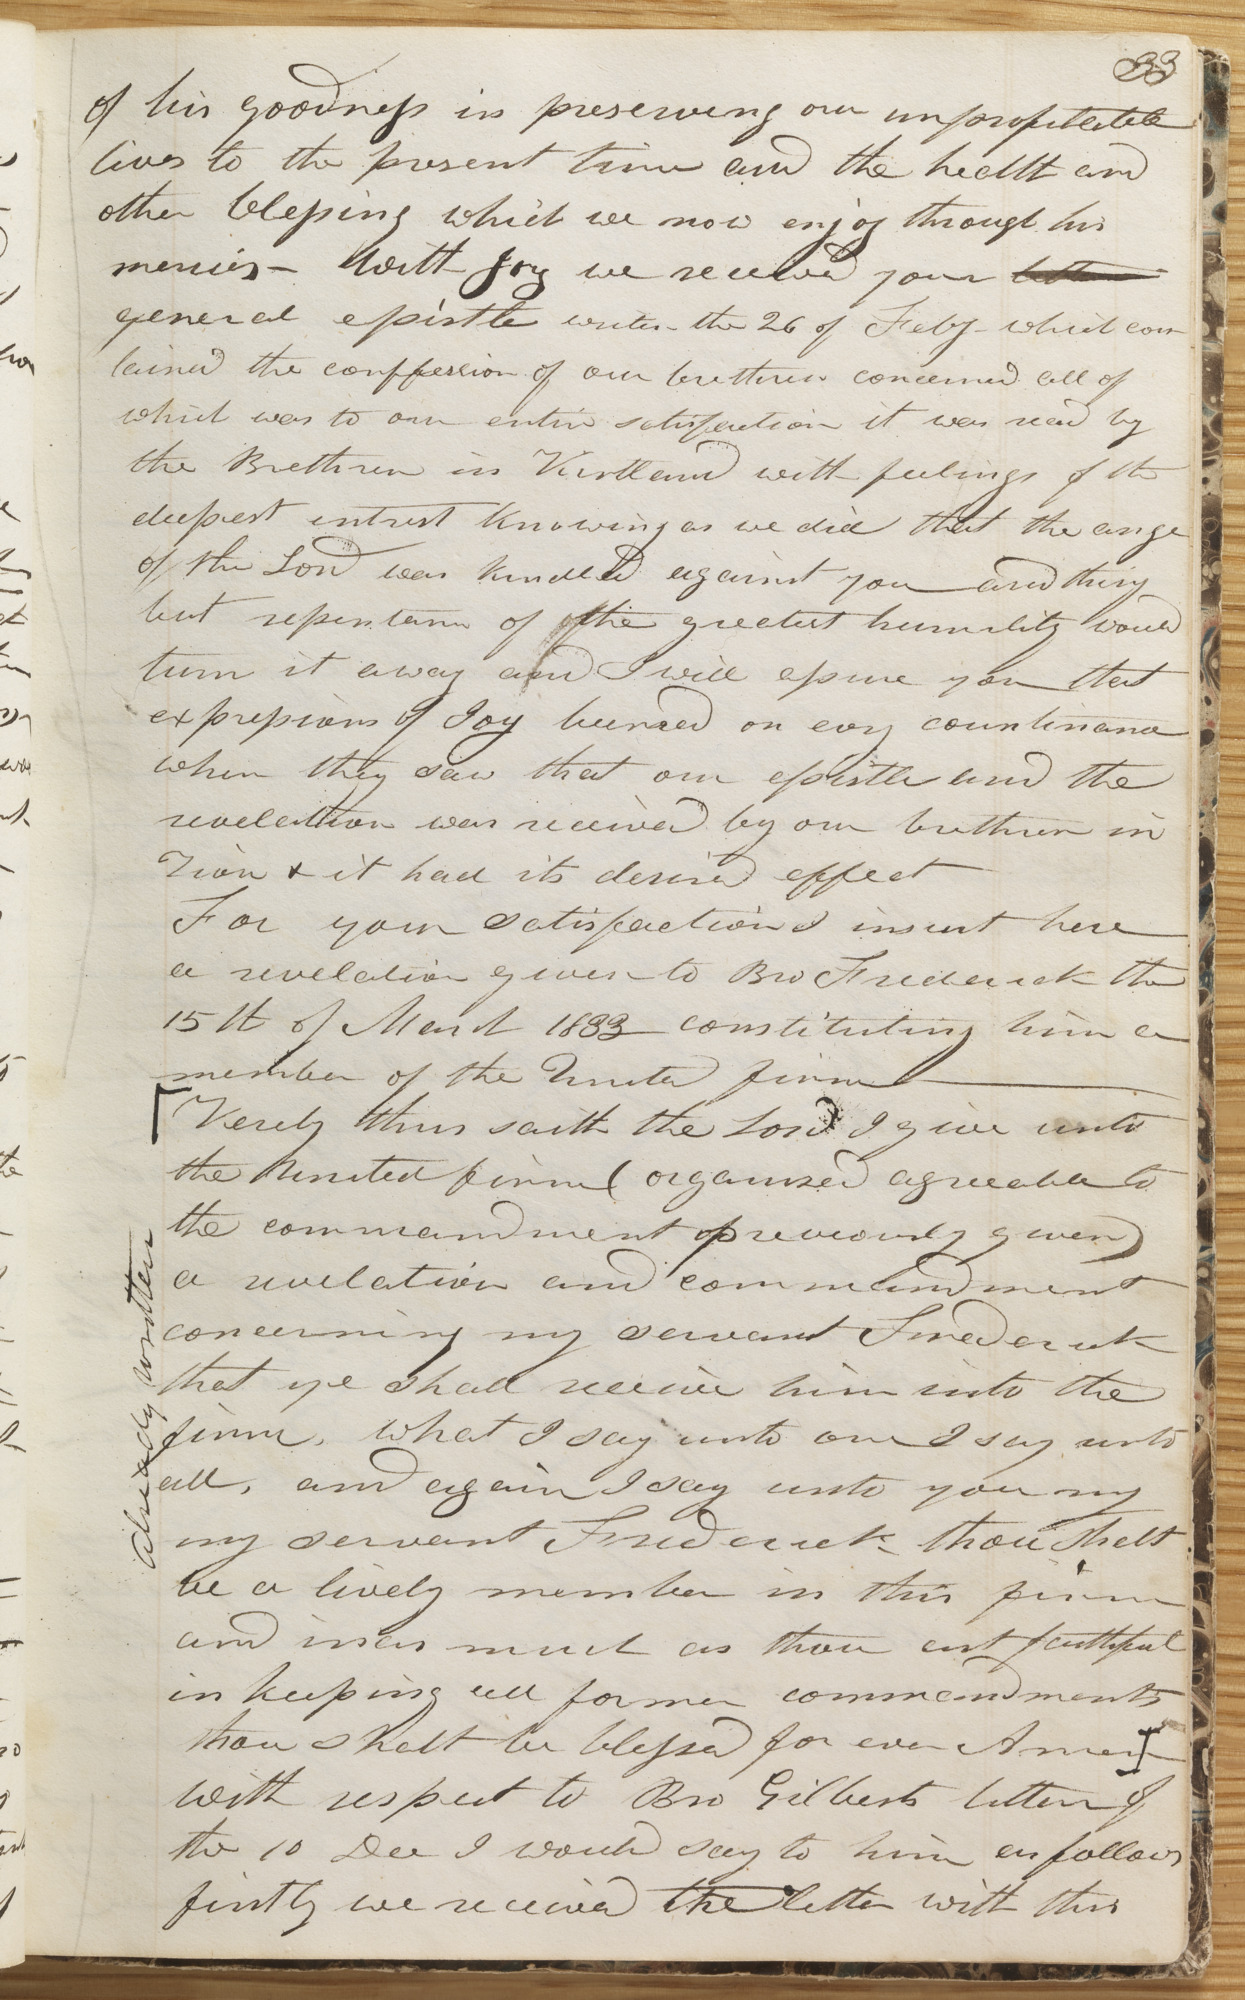 33
of his goodness in preserving our unprofitable
lives to the present time and the health and
other blessing which we now enjoy through his
mercies — With Joy we received your letter
general epistle writen the 26 of Feby— which con
tained the conffession of our brethren concerned all of
which was to our entire satisfaction it was read by
the Brethren in Kirtland with feelings of the
deepest intrest Knowing as we did that the ange
of the Lord was kindled against you and thing
but repentance of the greatest humility would
turn it away and I will assure you that
expressions of Joy beamed on evry countinance
when they saw that our epistle and the
revelation was received by our brethren in
Zion & it had its desired effect
For your satisfaction I insert here
a revelation given to Bro Frederick the
15th of March 1833 constituting him a
member of the United firm
Verely thus saith the Lord I give unto
the United firm ( organized agreeable to
the commandment previously given)
a revelation and commandment
concerning my servant Frederick
that ye shall receive him into the
firm, what I say unto one I say unto
all, and again I say unto you my
my servant Frederick thou shalt
be a lively member in this firm
and inas much as thou art faithful
in keeping all former commandments
thou shalt be blessed for ever Amen
with respect to Bro Gilberts letter of
the 10 Dec I would say to him as follows
firstly we received the letter with this
already written